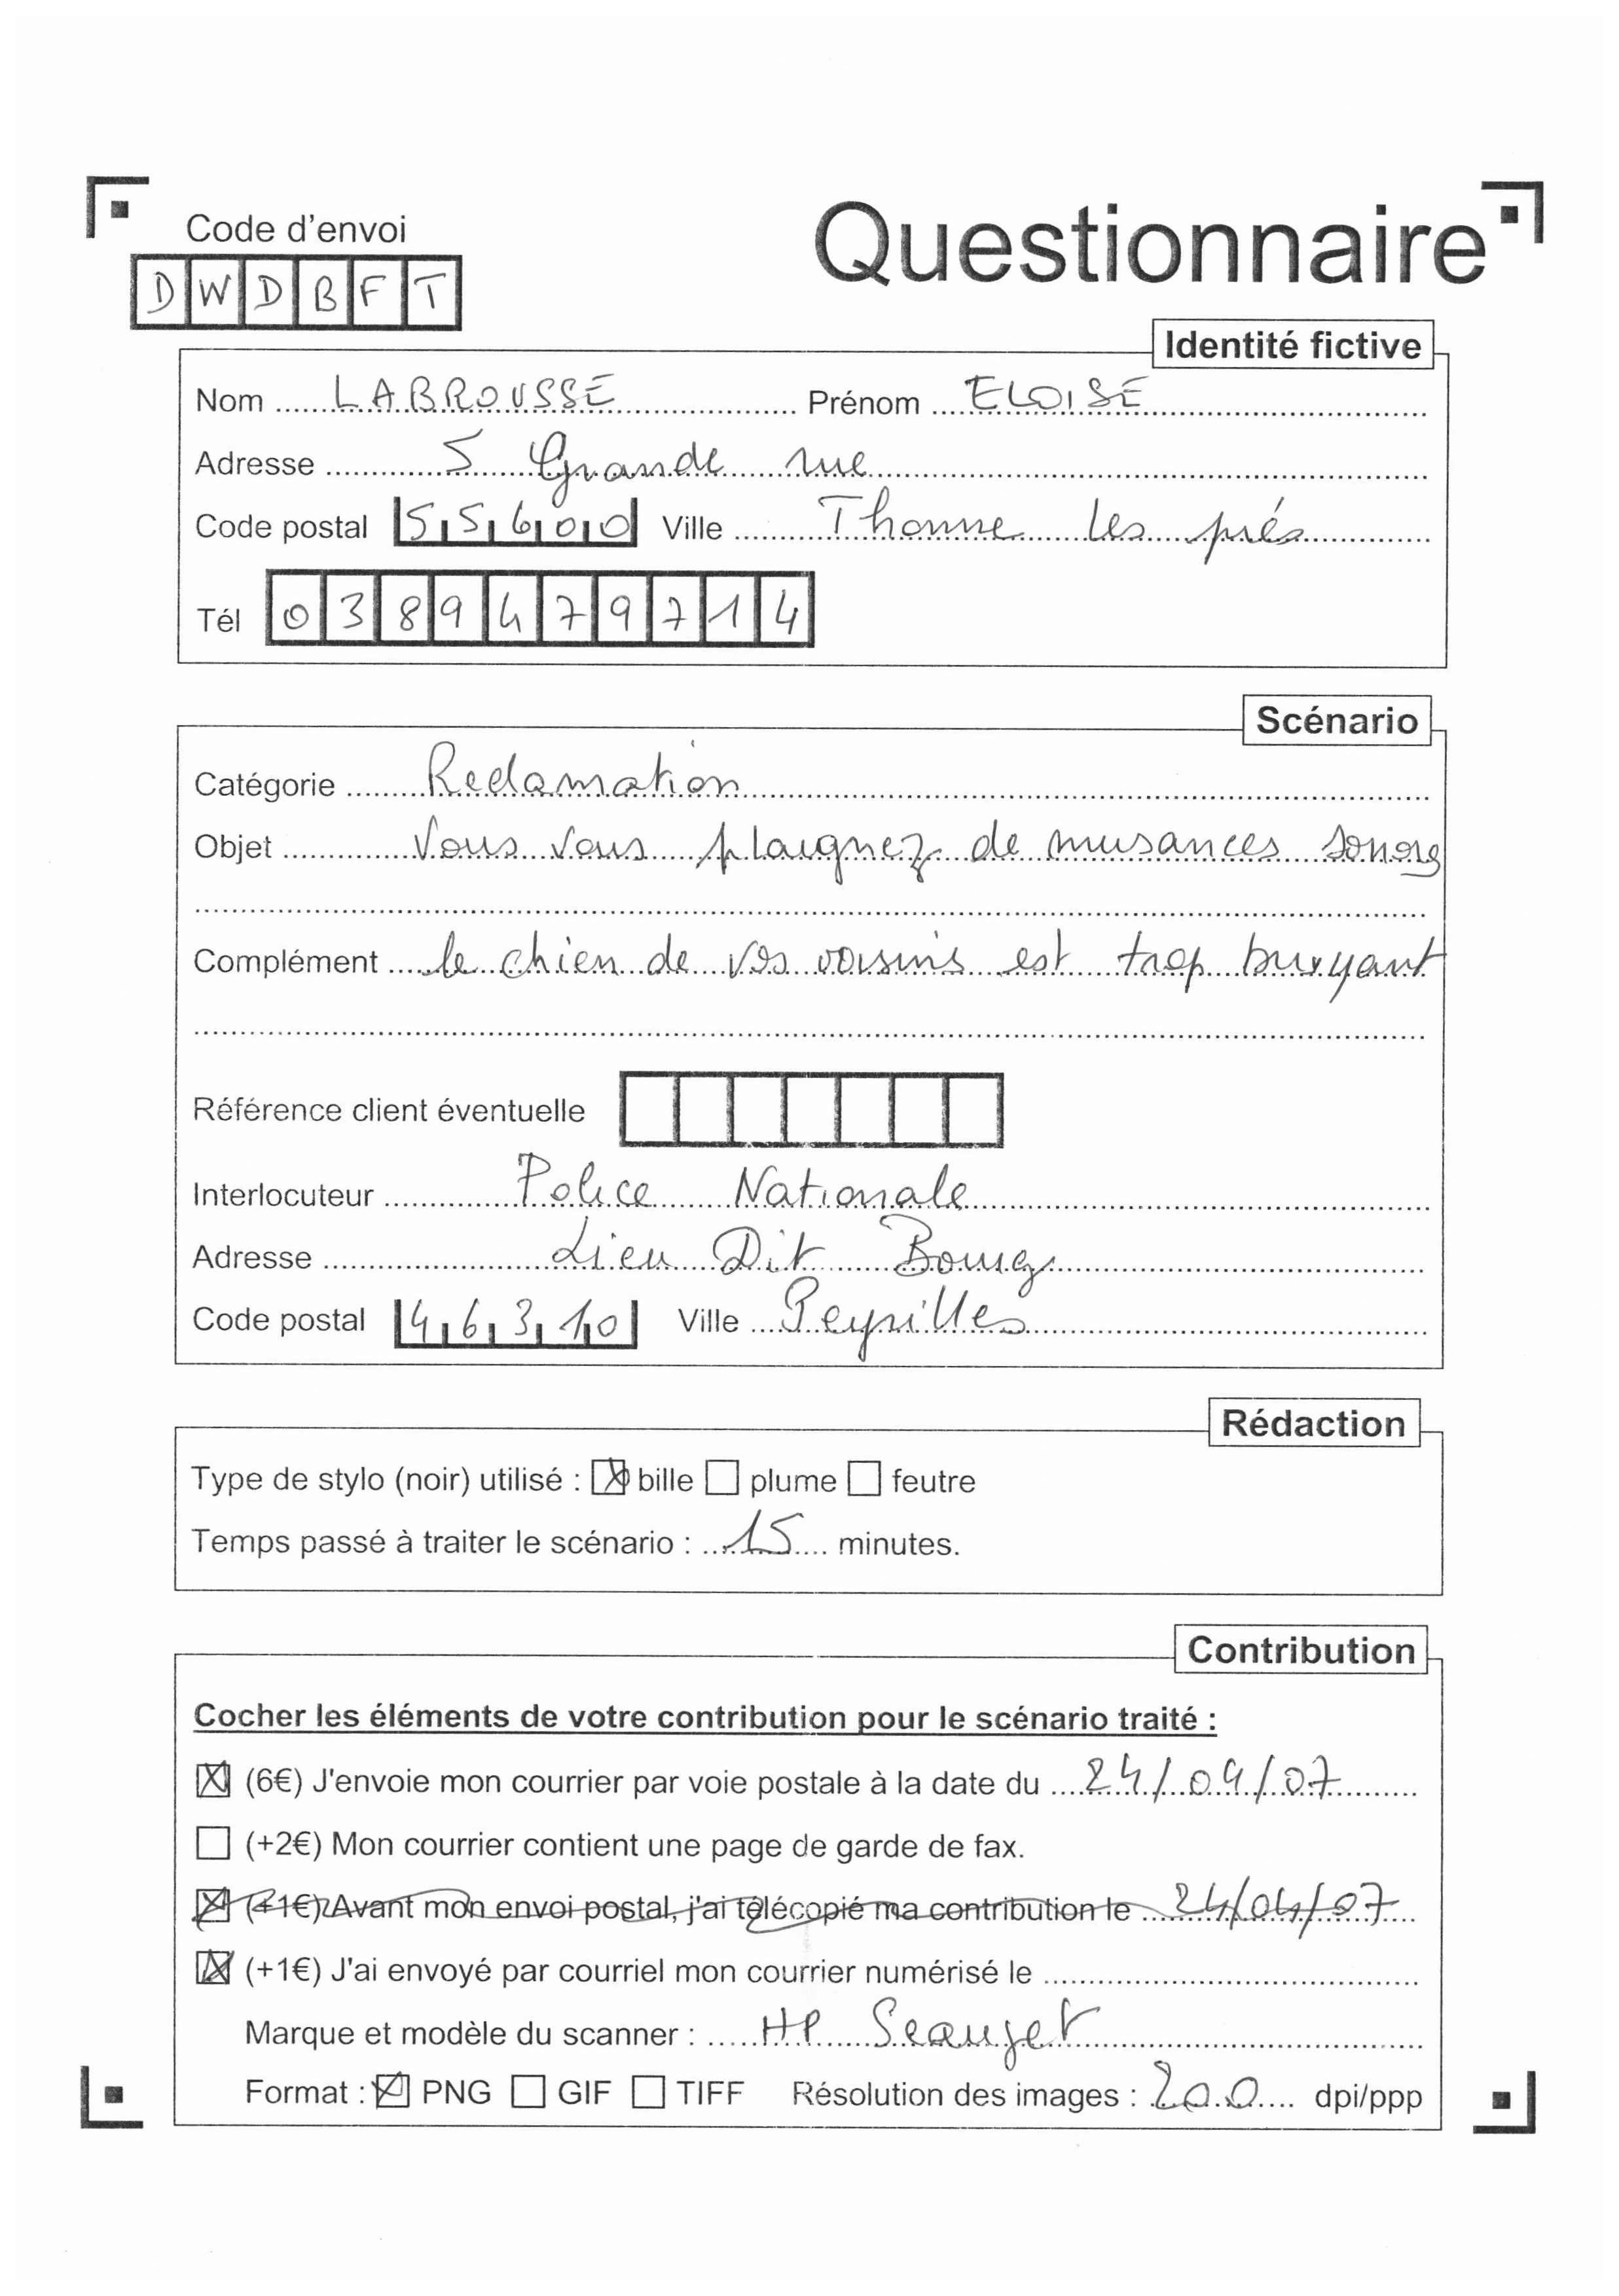 Code d'envoi
Questionnaire
D W D B F T
Identité fictive
Nom LABROUSSE Prénom ELOISE
Adresse 5 Grande rue
Code postal 55600 Ville Thonne les prés
Tél 0389479714
Scénario
Catégorie Reclamation
Objet Vous vous plaignez de nuisances sonores
Complément le chien de vos voisins est trop bruyant
Référence client éventuelle
Interlocuteur Police Nationale
Adresse Lieu Dit Bourg
Code postal 46310 Ville Peyrilles
Rédaction
Type de stylo (noir) utilisé : bille plume feutre
Temps passé à traiter le scénario : 15 minutes.
Contribution
Cocher les éléments de votre contribution pour le scénario traité :
(6€) J'envoie mon courrier par voie postale à la date du 24/04/07
(+2€) Mon courrier contient une page de garde de fax.
(+1€) Avant mon envoi postal, j'ai télécopié ma contribution le 24/04/07
(+1€) J'ai envoyé par courriel mon courrier numérisé le
Marque et modèle du scanner : HP Scanjet
Format : PNG GIF TIFF Résolution des images : 200 dpi/ppp